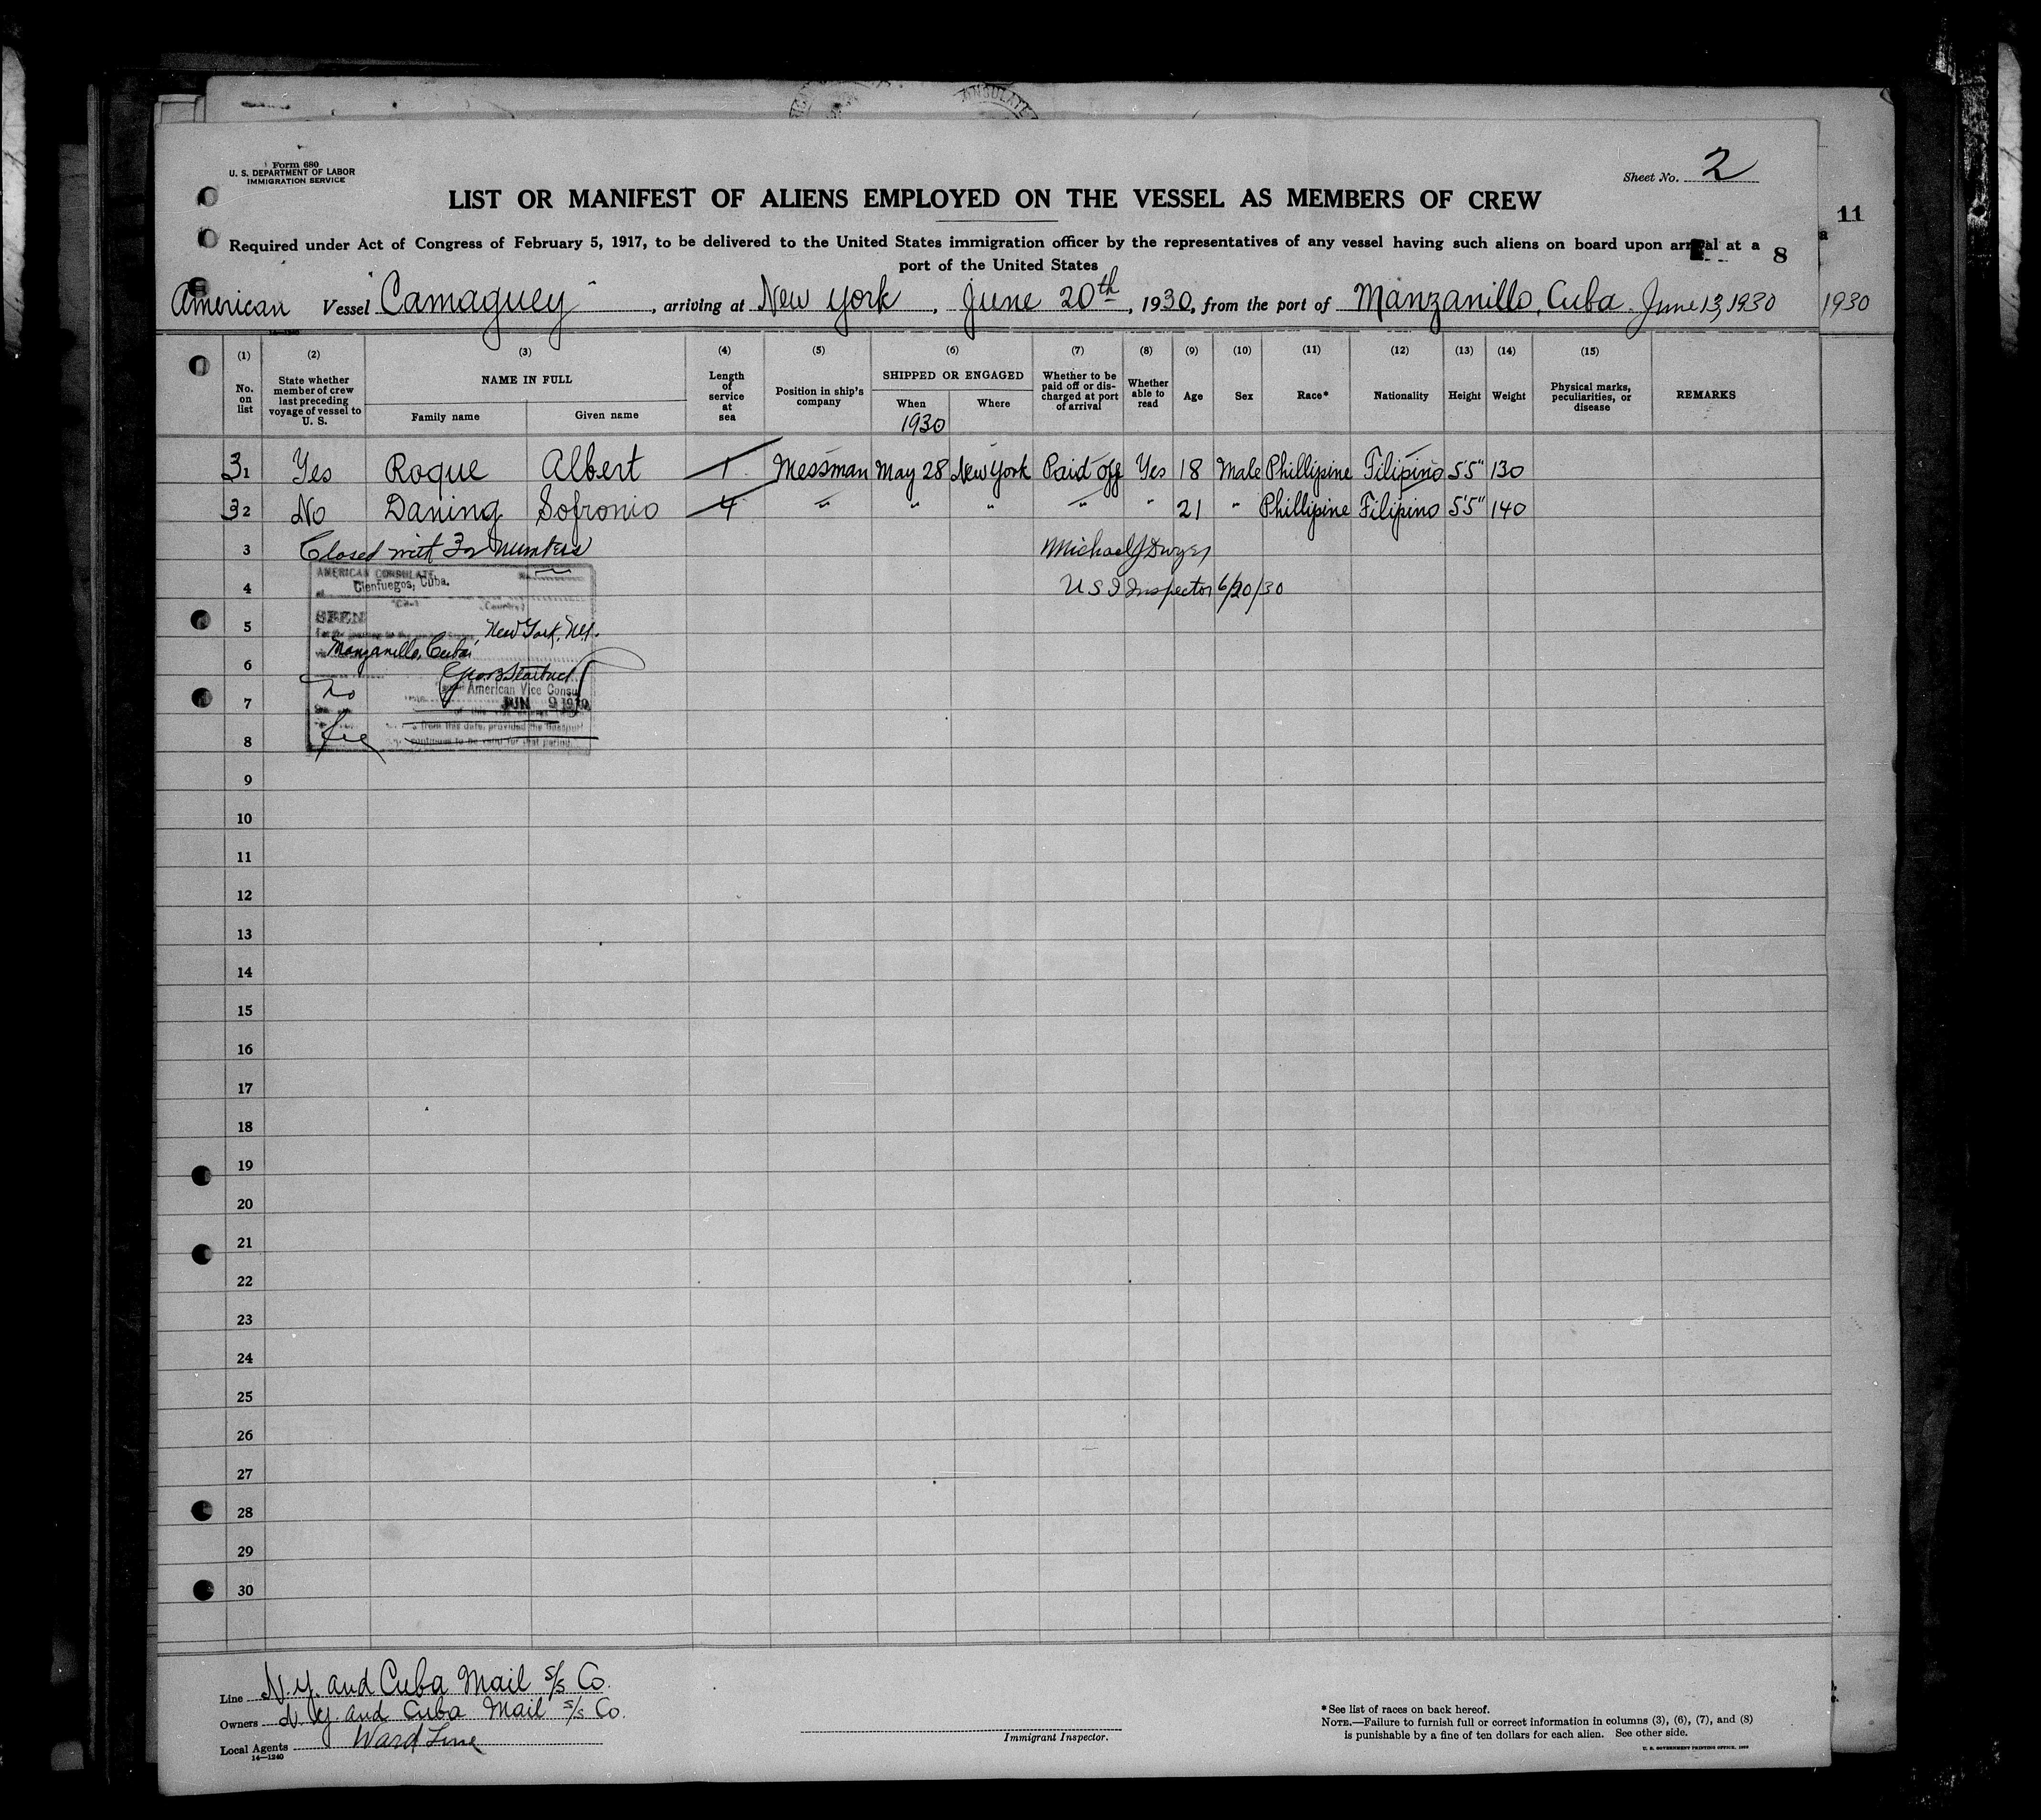 CONSULATE
Form 680
U. S. DEPARTMENT OF LABOR
IMMIGRATION SERVICE
Sheet No. 2
LIST OR MANIFEST OF ALIENS EMPLOYED ON THE VESSEL AS MEMBERS OF CREW
11
Required under Act of Congress of February 5, 1917, to be delivered to the United States immigration officer by the representatives of any vessel having such aliens on board upon arrival at a
port of the United States
8
American Vessel "Camaguey", arriving at New York, June 20th, 1930, from the port of Manzanillo, Cuba. June 13, 1930
1930
(1) (2) (3) (4) (5) (6) (7) (8) (9) (10) (11) (12) (13) (14) (15)
No. on list
State whether member of crew last preceding voyage of vessel to U. S.
NAME IN FULL
Family name
Given name
Length of service at sea
Position in ship's company
SHIPPED OR ENGAGED
When
1930
Where
Whether to be paid off or discharged at port of arrival
Whether able to read
Age
Sex
Race*
Nationality
Height
Weight
Physical marks, peculiarities, or disease
REMARKS
31 Yes Roque Albert 1 Messman May 28 New York Paid off Yes 18 Male Phillipine Filipino 5'5" 130
32 No Daning Sofronio 4 " " " " " 21 " Phillipine Filipino 5'5" 140
3 Closed with 32 Numbers Michael J Dwyer
4 U S I Inspector 6/20/30
AMERICAN CONSULATE
Cienfuegos, Cuba.
(Country)
5 SEEN
New York, N.Y.
Manzanillo, Cuba
6
American Vice Consul
7 No
JUN 9 1930
from this date, provided the passport
8 fee
continues to be valid for that period
9
10
11
12
13
14
15
16
17
18
19
20
21
22
23
24
25
26
27
28
29
30
Line N.Y. and Cuba Mail s/s Co.
Owners N.Y. and Cuba Mail s/s Co.
Local Agents Ward Line
14—1240
Immigrant Inspector.
* See list of races on back hereof.
NOTE.—Failure to furnish full or correct information in columns (3), (6), (7), and (8)
is punishable by a fine of ten dollars for each alien. See other side.